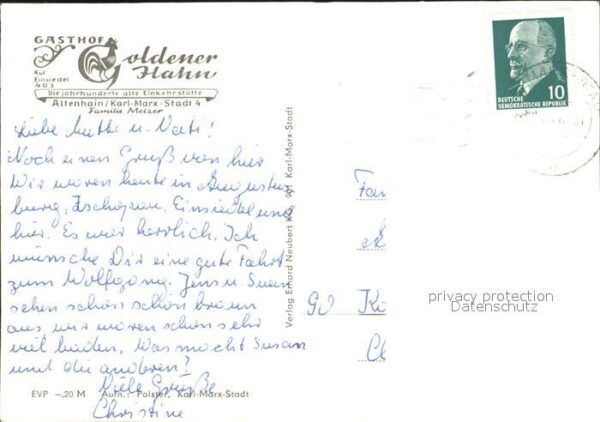 GASTHOF
Goldener
Hahn
Ruf
Einsiedel
403
Die jahrhunderte alte Einkehrstätte
Altenhain/Karl-Marx-Stadt 4
Familie Melzer
Liebe Mutti u. Vati!
Noch einen Gruß von hier
Wir waren heute in Augustus
burg, Zschopau, Einsiedel und
hier. Es war herrlich. Ich
wünsche Dir eine gute Fahrt
zum Wolfgang. Jens u. Susan
sehen schon schön braun
aus, wir waren schon sehr
viel baden. Was macht Susan
und die anderen?
Viele Grüße
Christine
EVP -,20 M Aufn.: Polster, Karl-Marx-Stadt
Verlag Erhard Neubert KG, 901 Karl-Marx-Stadt
10
DEUTSCHE
DEMOKRATISCHE REPUBLIK
Fam
90
privacy protection
Datenschutz